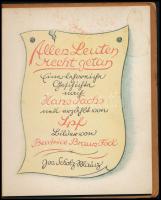 Allen Leuten
recht getan
Eine lehrreiche
Geschichte
nach
Hans Sachs
neu erzählt von
Spf
Bilder von
Beatrice Braun-Fock
Jos. Scholz-Mainz